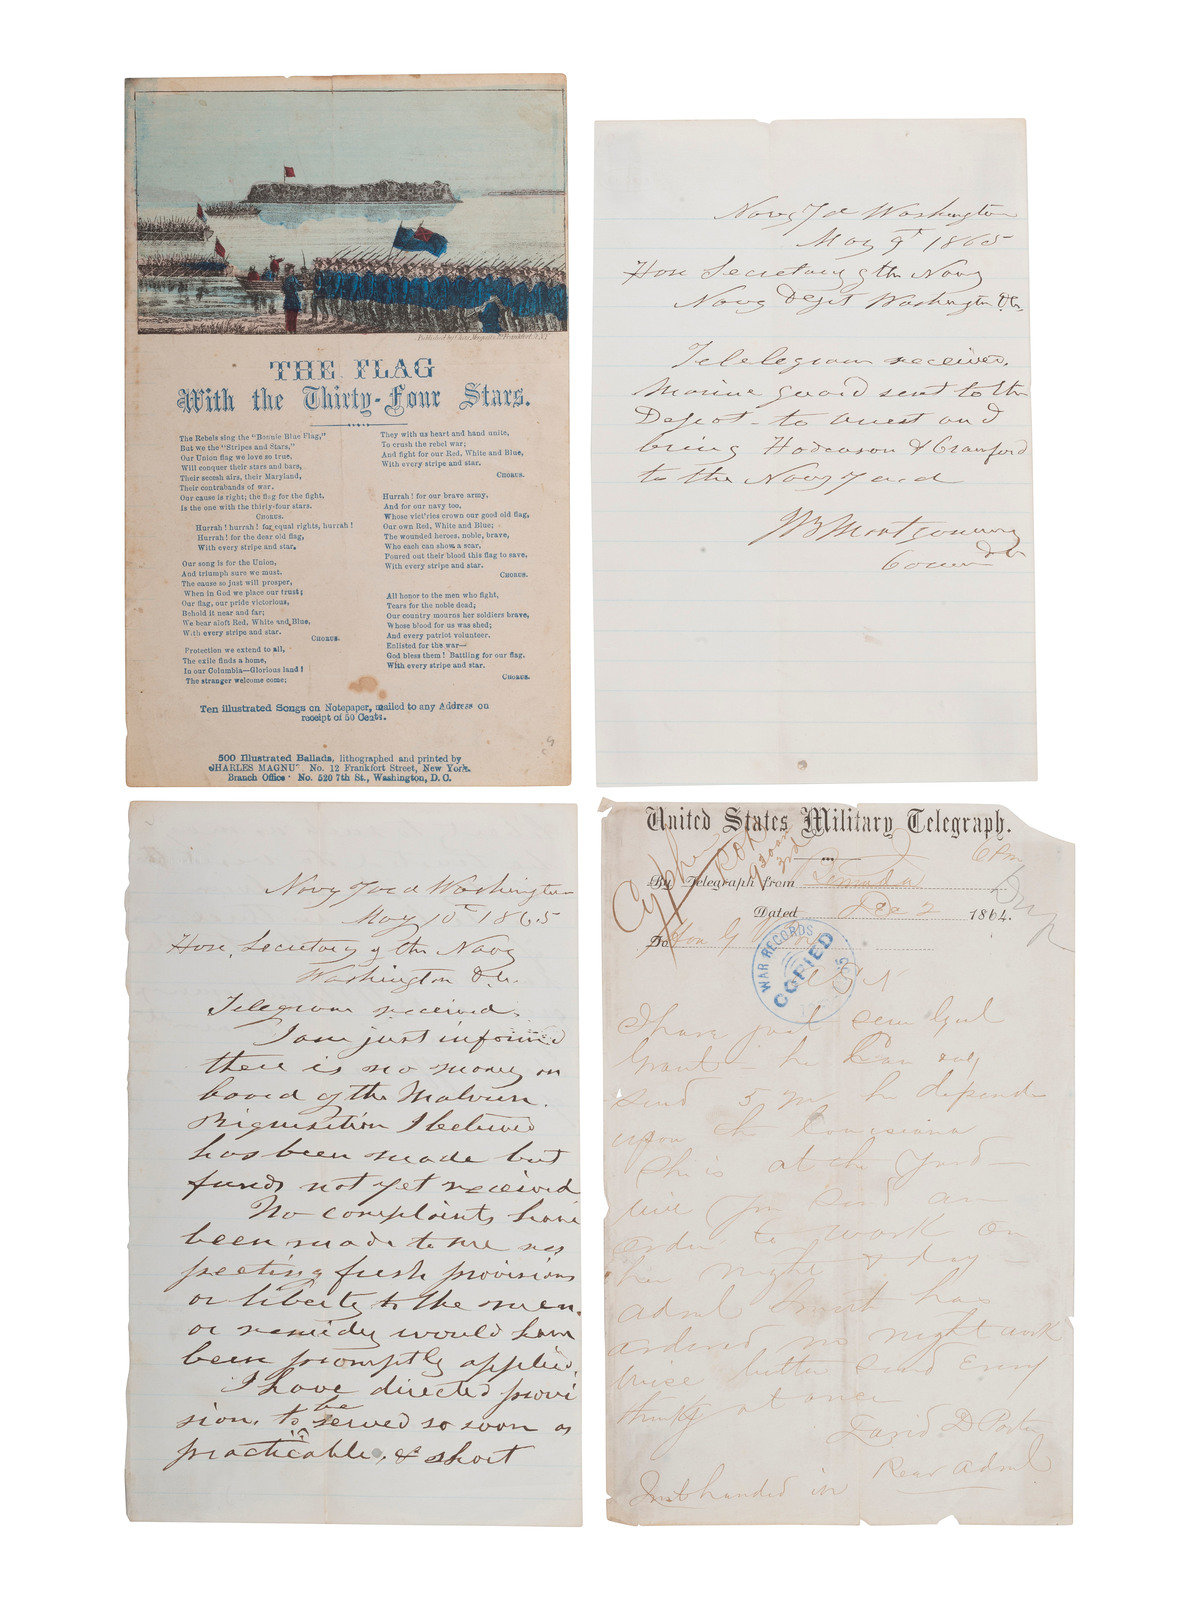 Published by Chas. Magnus 12 Frankfort St. N.Y.
THE FLAG
With the Thirty-Four Stars.
The Rebels sing the "Bonnie Blue Flag,"
But we the "Stripes and Stars,"
Our Union flag we love so true,
Will conquer their stars and bars,
Their secesh airs, their Maryland,
Their contrabands of war.
Our cause is right; the flag for the fight,
Is the one with the thirty-four stars.
CHORUS.
Hurrah! hurrah! for equal rights, hurrah!
Hurrah! for the dear old flag,
With every stripe and star.
Our song is for the Union,
And triumph sure we must,
The cause so just will prosper,
When in God we place our trust;
Our flag, our pride victorious,
Behold it near and far;
We bear aloft Red, White and Blue,
With every stripe and star.
CHORUS.
Protection we extend to all,
The exile finds a home,
In our Columbia—Glorious land!
The stranger welcome come;
They with us heart and hand unite,
To crush the rebel war;
And fight for our Red, White and Blue,
With every stripe and star.
CHORUS.
Hurrah! for our brave army,
And for our navy too,
Whose vict'ries crown our good old flag,
Our own Red, White and Blue;
The wounded heroes, noble, brave,
Who each can show a scar,
Poured out their blood this flag to save,
With every stripe and star.
CHORUS.
All honor to the men who fight,
Tears for the noble dead;
Our country mourns her soldiers brave,
Whose blood for us was shed;
And every patriot volunteer,
Enlisted for the war—
God bless them! Battling for our flag.
With every stripe and star.
CHORUS.
Ten illustrated Songs on Notepaper, mailed to any Address on
receipt of 50 Cents.
500 Illustrated Ballads, lithographed and printed by
CHARLES MAGNUS, No. 12 Frankfort Street, New York.
Branch Office: No. 520 7th St., Washington, D. C.
Navy Yd Washington
May 9th 1865
Hon Secretary of the Navy
Navy Dept Washington D.C.
Telelegram received.
Marine guard sent to the
Depot to arrest and
bring Hodgson & Cranford
to the Navy Yard
JB Montgomery
Navy Yard Washington
May 10th 1865
Hon. Secretary of the Navy
Washington D.C.
Telegram received.
I am just informed
there is no money on
board of the Malvern.
Riquisition I believe
has been made but
funds not yet received
No complaints have
been made to me res
pecting fresh provisions
or liberty to the men.
or remidy would have
been promptly applied.
I have directed provi
sion. to be served so soon as
practicable, & short
United States Military Telegraph.
Cypher
6 Pm
920am
3rd
By Telegraph from
Dated Dec 2 1864.
To Hon G V Fox
WAR RECORDS
COPIED
I have just seen Genl
Grant – he can only
send 5 m he depends
upon the Louisiana
She is at the Yard –
will you send an
order to work on
her night & day –
Adml Smith has
ordered no night work
wise butter send every
thing at once
David D Porter
Rear Adml
Just handed in